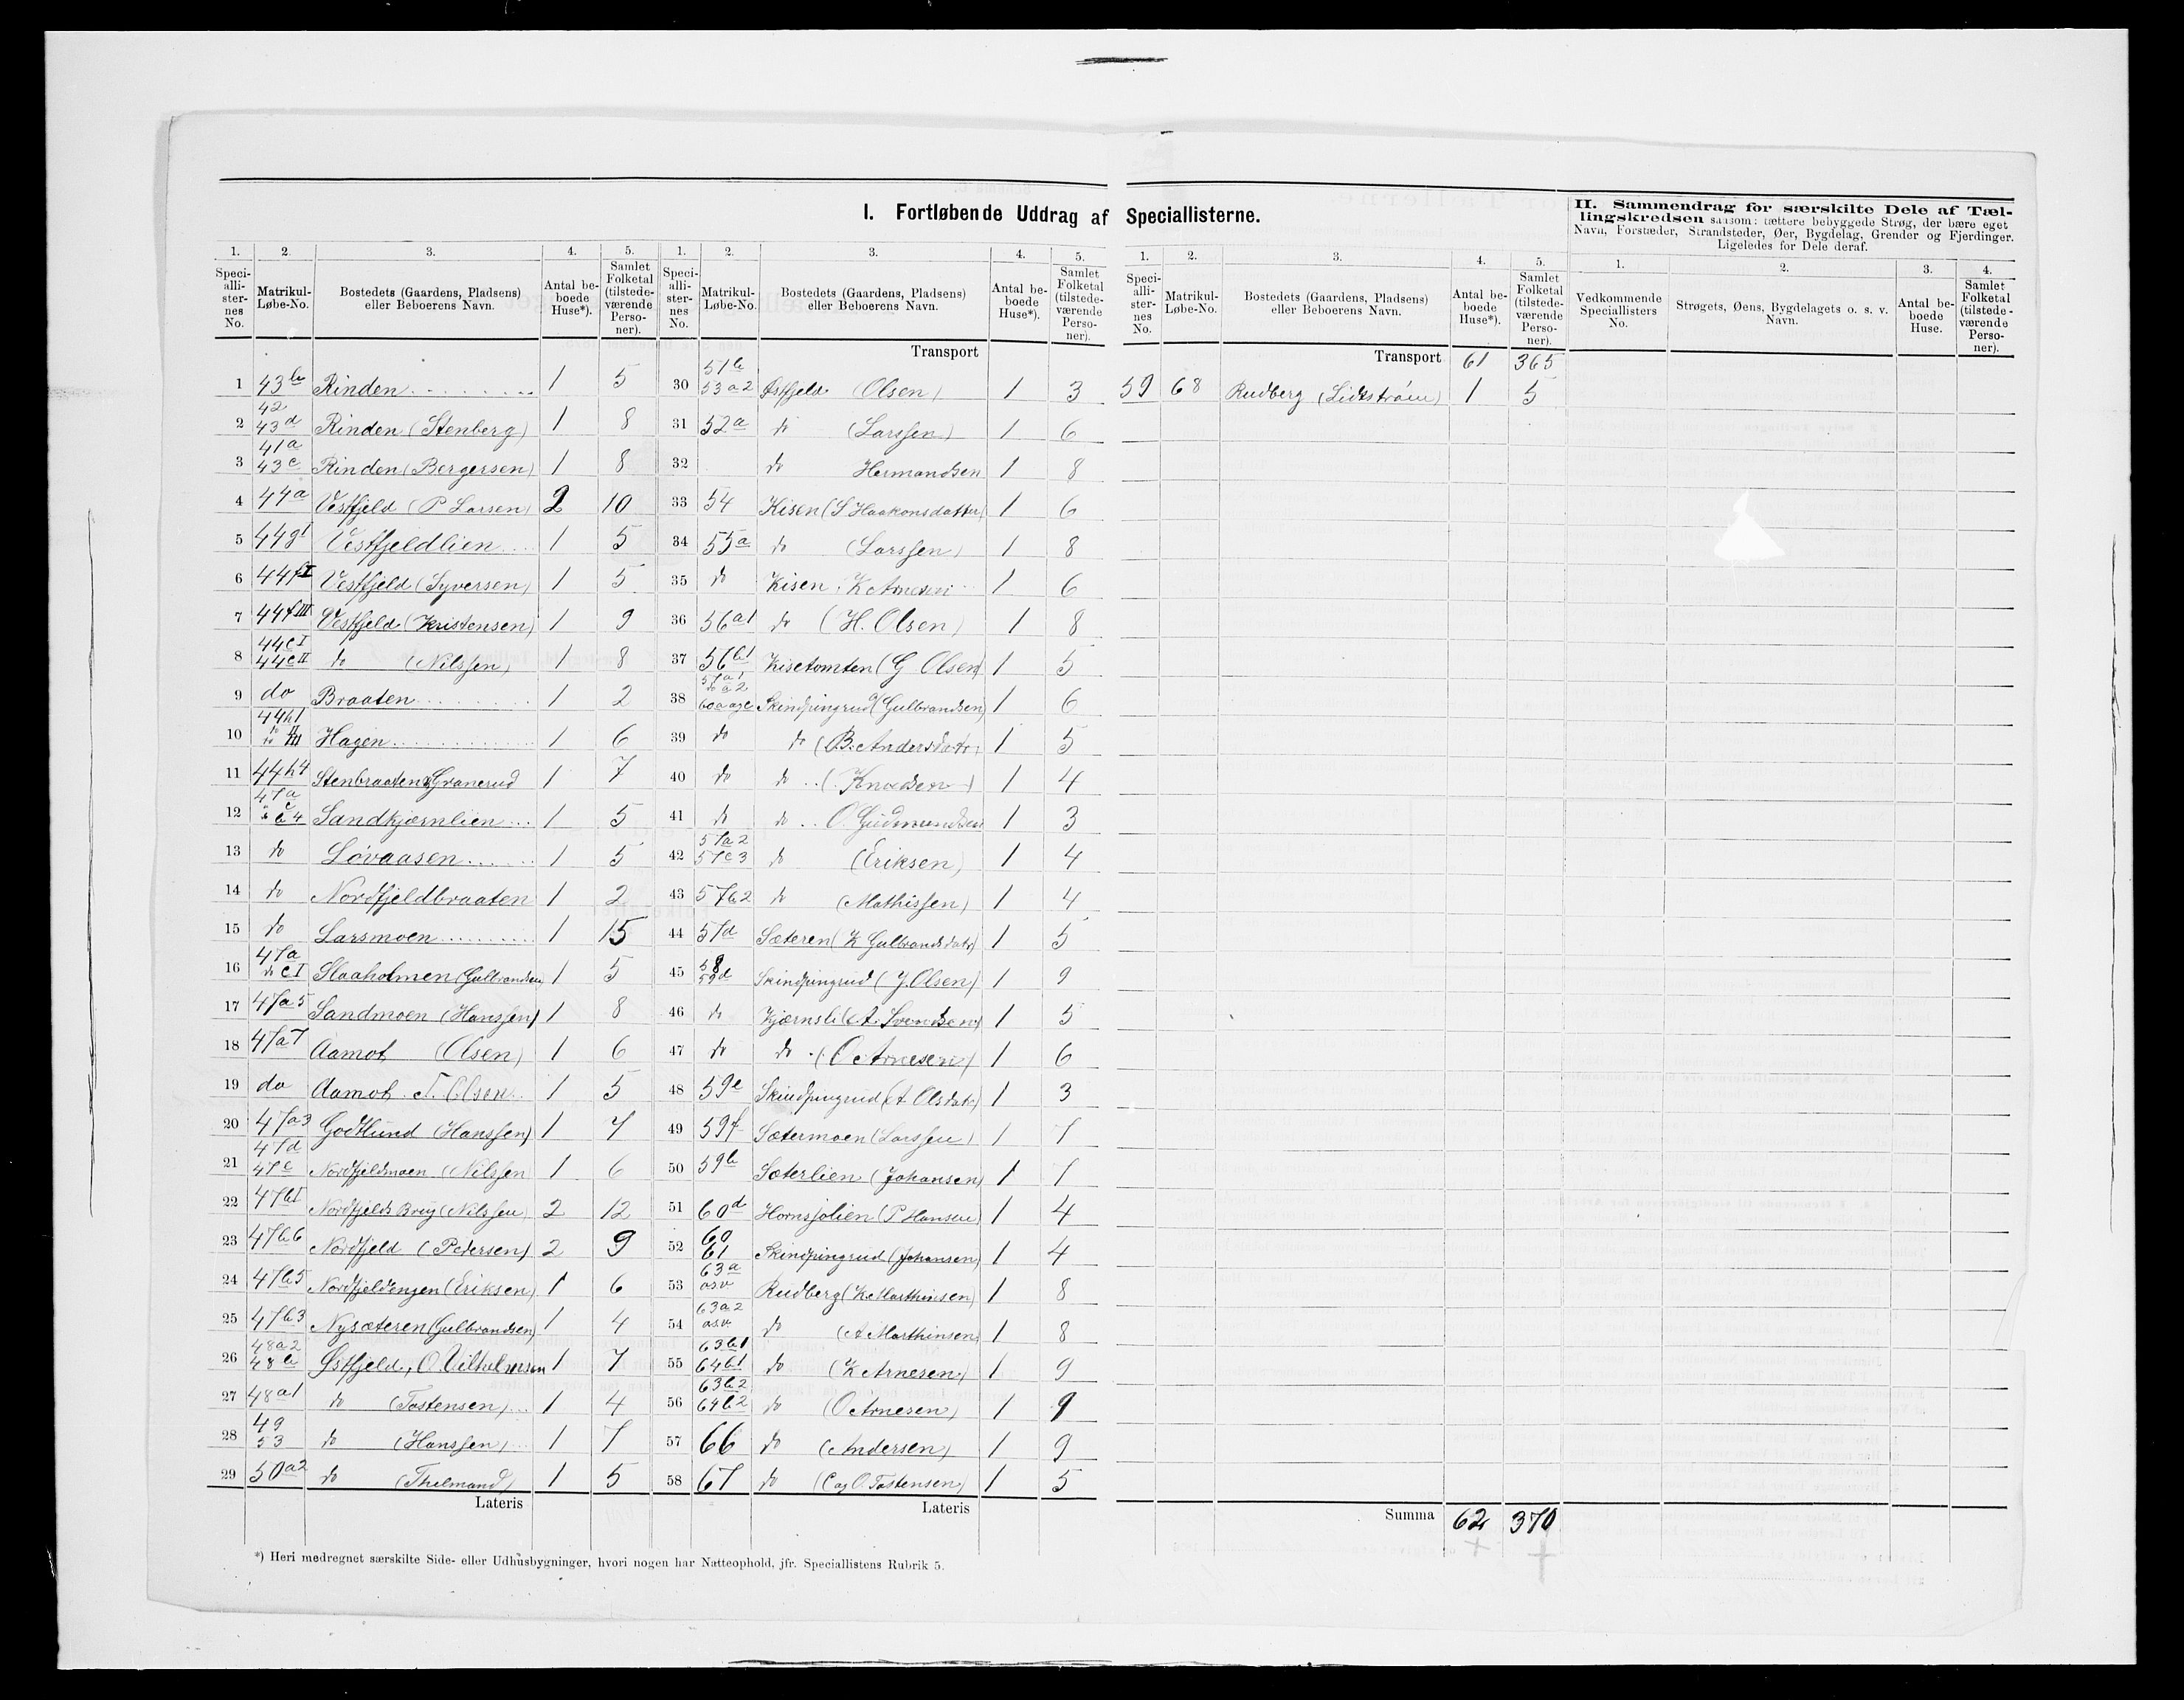 I. Fortløbende Uddrag af Speciallisterne.
II. Sammendrag for særskilte Dele af Tæl-
lingskredsen saasom: tættere bebyggede Strøg, der bære eget
Navn, Forstæder, Strandsteder, Øer, Bygdelag, Grender og Fjerdinger.
Ligeledes for Dele deraf.
1. 2. 3. 4. 5. 1. 2. 3. 4. 5. 1. 2. 3. 4. 5. 1. 2. 3. 4.
Speci-alli-ster-nes No. Matrikul-Løbe-No. Bostedets (Gaardens, Pladsens) eller Beboerens Navn. Antal be-boede Huse*). Samlet Folketal (tilstede-værende Perso-ner).
Speci-alli-ster-nes No. Matrikul-Løbe-No. Bostedets (Gaardens, Pladsens) eller Beboerens Navn. Antal be-boede Huse*). Samlet Folketal (tilstede-værende Perso-ner).
Speci-alli-ster-nes No. Matrikul-Løbe-No. Bostedets (Gaardens, Pladsens) eller Beboerens Navn. Antal be-boede Huse*). Samlet Folketal (tilstede-værende Perso-ner).
Vedkommende Speciallisters No. Strøgets, Øens, Bygdelagets o. s. v. Navn. Antal be-boede Huse. Samlet Folketal (tilstede-værende Perso-ner).
1 43b Rinden 1 5
2 42 43d Rinden (Stenberg) 1 8
3 41a 43c Rinden (Bergersen) 1 8
4 44a Vestfjeld (P Larsen) 2 10
5 44g1 Vestfjeldlien 1 5
6 44fI Vestfjeld (Syversen) 1 5
7 44fIII Vestfjeld (Kristensen) 1 9
8 44cI 44cII do (Nilssen) 1 8
9 do Braaten 1 2
10 44h1 do II do III Hagen 1 6
11 44h4 Stenbraaten & Granerud 1 7
12 47a Sandkjærnlien 1 5
13 do Løvaasen 1 5
14 do Nordfjeldbraaten 1 2
15 do Larsmoen 1 15
16 47a do cI Slaaholmen (Gulbrandsen) 1 5
17 47a5 Sandmoen (Hanssen) 1 8
18 47a7 Aamot (Olsen) 1 6
19 do Aamot T. Olsen 1 5
20 47a3 Godtlund (Hanssen) 1 7
21 47d 47c Nordfjeldmoen (Nilssen 1 6
22 47bI Nordfjelds Brug (Nilssen) 2 12
23 47b6 Nordfjeld (Petersen) 2 9
24 47b5 Nordfjeldengen (Eriksen) 1 6
25 47b3 Nysæteren (Gulbrandsen) 1 4
26 48a2 48b Østfjeld, O. Vilhelmsen 1 7
27 48a1 do (Tostensen) 1 4
28 49 53 do (Hanssen) 1 7
29 50a2 do (Thelmand) 1 5
Lateris
Transport
30 51b 53a2 Østfjeld (Olsen) 1 3
31 52a do (Larssen) 1 6
32 do Hermandsen 1 8
33 54 Kisen (S Haakonsdatter) 1 6
34 55a do (Larssen) 1 8
35 do Kisen K Arnesen 1 6
36 56a1 do (H. Olsen) 1 8
37 56b1 Kisetomten (G Olsen) 1 5
38 57a1 do a2 60a og c Skindpingrud (Gulbrandsen) 1 6
39 do do (B. Andersdatr) 1 5
40 do do (Knudsen) 1 4
41 do do O. Gudmundsen 1 3
42 57a2 57c3 do (Eriksen) 1 4
43 57b2 do (Mathissen) 1 4
44 57d Sæteren (K Gulbrandsdatr) 1 5
45 58 59d Skindpingrud (J. Olsen) 1 9
46 do Kjærnsli (A. Svendsen) 1 5
47 do do (O Arnesen) 1 6
48 59e Skindpingrud (A Olsdatr) 1 3
49 59f Sætermoen (Larssen) 1 7
50 59b Sæterlien (Johansen) 1 7
51 60d Hornsjølien (P Hansen) 1 4
52 60 61 Skindpingrud (Johansen) 1 4
53 63a osv Rudberg (K Marthinsen) 1 8
54 63a2 osv do (A Marthinsen) 1 8
55 63b1 64b1 do (K Arnesen) 1 9
56 63b2 64b2 do (O Arnesen) 1 9
57 66 do (Andersen) 1 9
58 67 do (C og O. Tostensen) 1 5
Lateris
Transport 61 365
59 68 Rudberg (Lidstrøm) 1 5
Summa 62 370
*) Heri medregnet særskilte Side- eller Udhusbygninger, hvori nogen har Natteophold, jfr. Speciallistens Rubrik 5.